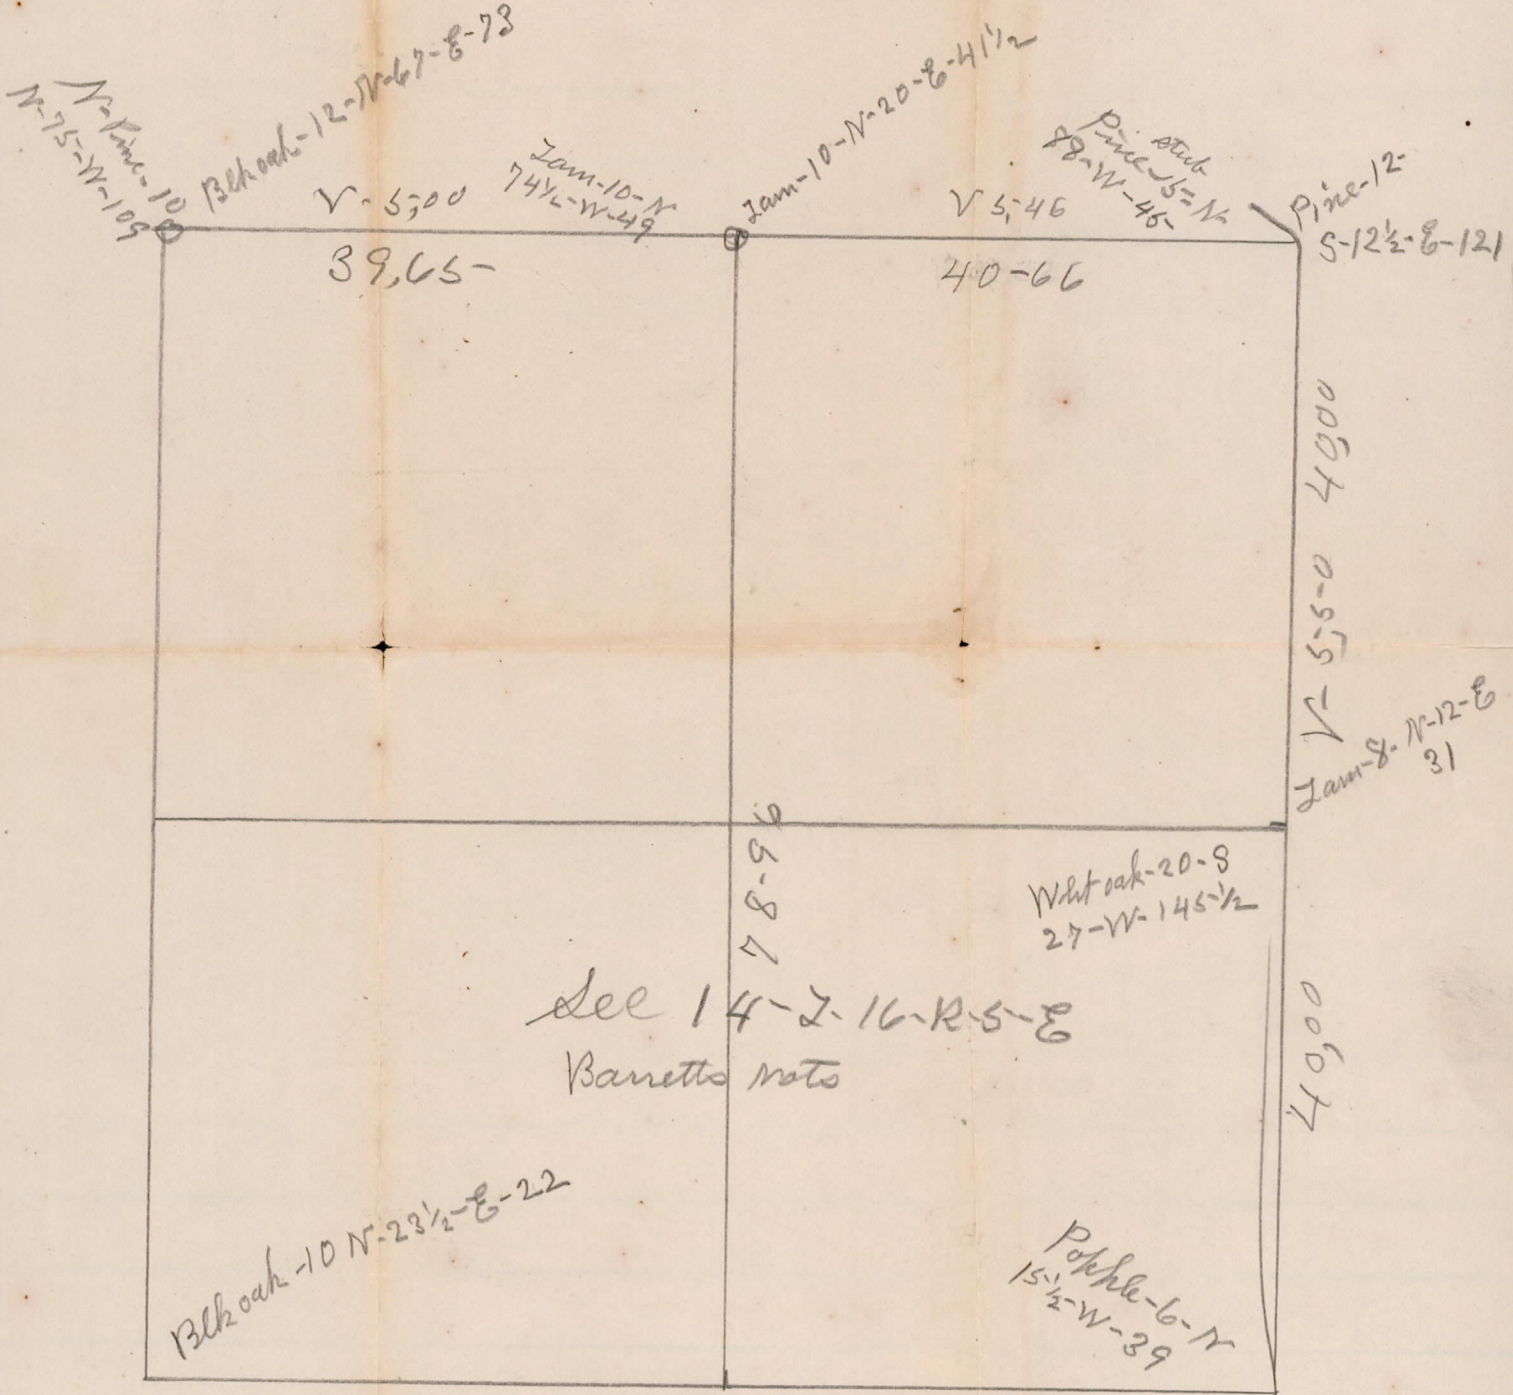 N-Pine-10
N-75-W-109
Blk oak-12-N-67-E-73
V-5,00
39,65-
Tam-10-N
74½-W-49
Tam-10-N-20-E-41½
V 5,46
40-66
Pine stub
5-N
88-W-46-
Pine-12-
S-12½-E-121
40,00
V-5,50
Tam-8-N-12-E
31
78-96
Wht oak-20-S
27-W-145½
Sec 14-T-16-R-5-E
Barretts nots
40,00
Blk oak-10 N-23½-E-22
Popple-6-N
15½-W-39